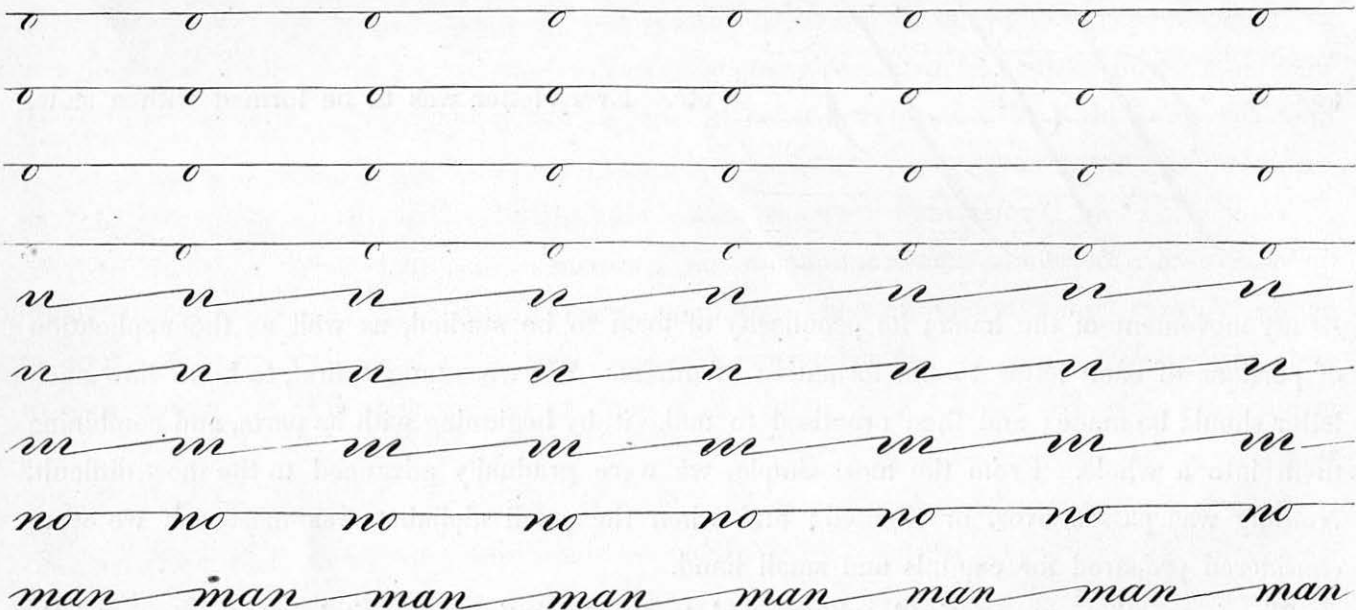 o o o o o o o o
o o o o o o o o
o o o o o o o o
o o o o o o o
n n n n n n n n
n n n n n n n n
m m m m m m m m
no no no no no no no no
man man man man man man man man